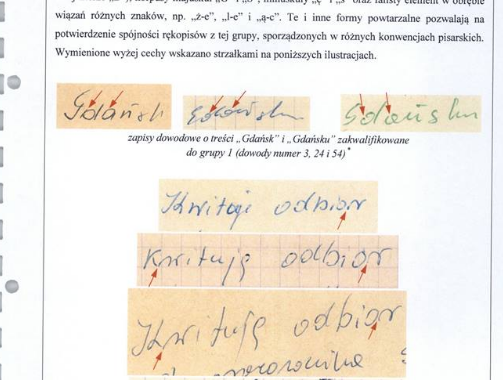 wiązań różnych znaków, np. „ż-e”, „l-e” i „ą-c”. Te i inne formy powtarzalne pozwalają na
potwierdzenie spójności rękopisów z tej grupy, sporządzonych w różnych konwencjach pisarskich.
Wymienione wyżej cechy wskazano strzałkami na poniższych ilustracjach.
Gdańsk Gdańsku Gdańsku
zapisy dowodowe o treści „Gdańsk” i „Gdańsku” zakwalifikowane
do grupy 1 (dowody numer 3, 24 i 54)*
Kwituję odbior
Kwituję odbior
Kwituję odbior